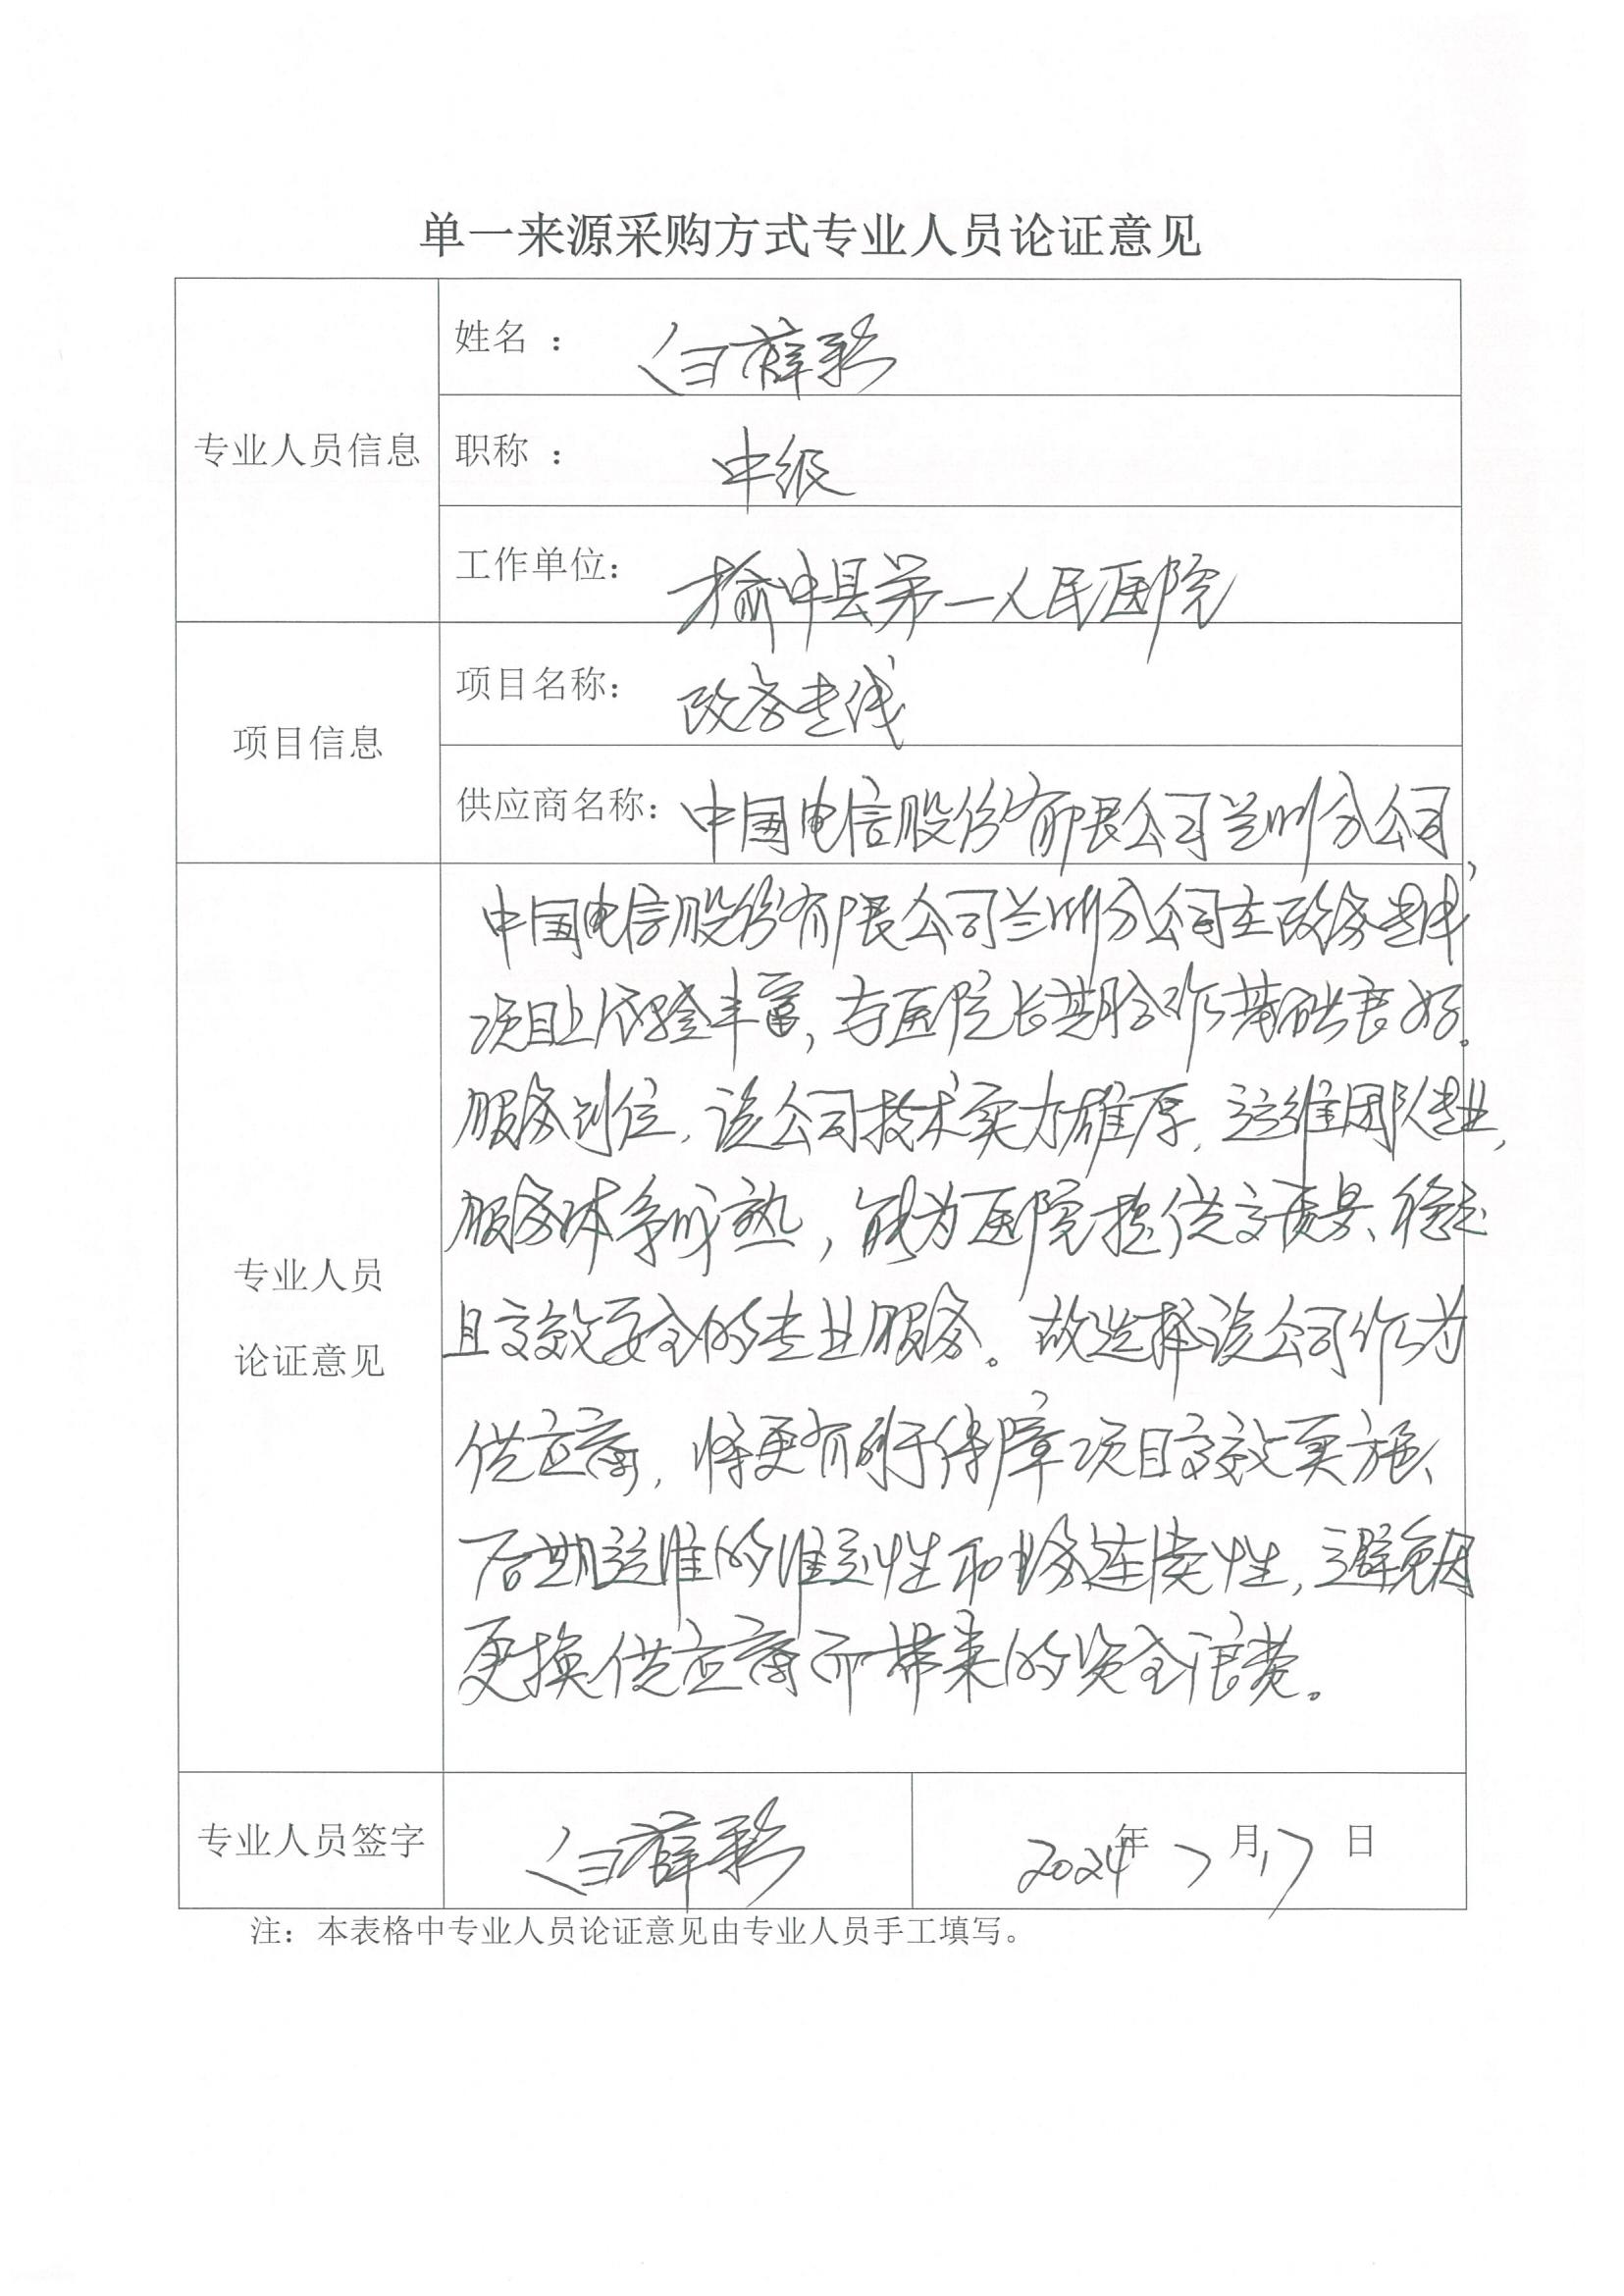 单一来源采购方式专业人员论证意见
专业人员信息
姓名 : 白薛彩
职称 : 中级
工作单位: 榆中县第一人民医院
项目信息
项目名称: 政务专线
供应商名称: 中国电信股份有限公司兰州分公司
专业人员
论证意见
中国电信股份有限公司兰州分公司在政务专线
项目上经验丰富,与医院长期合作基础良好。
服务到位,该公司技术实力雄厚,运维团队专业,
服务体系成熟,能为医院提供高质量、稳定
且高效安全的专业服务。故选择该公司作为
供应商,将更有利于保障项目高效实施、
后期运维的稳定性和业务连续性,避免因
更换供应商而带来的资金浪费。
专业人员签字
白薛彩
2024年 7 月 17 日
注: 本表格中专业人员论证意见由专业人员手工填写。